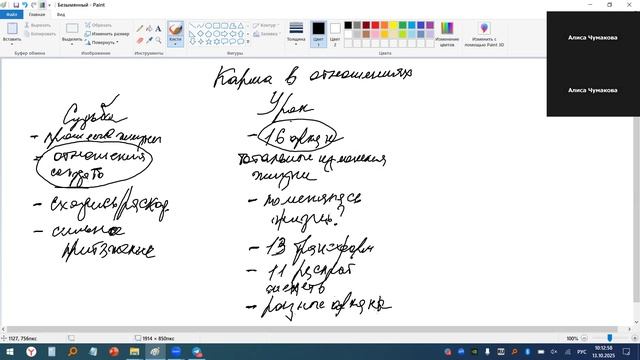 Безымянный - Paint
Файл Главная Вид
Вставить Вырезать Копировать
Выделить Обрезать Изменить размер Повернуть
Кисти
Контур
Заливка
Толщина Цвет 1 Цвет 2 Изменение цветов Изменить с помощью Paint 3D
Буфер обмена Изображение Инструменты Фигуры Цвета
Алиса Чумакова
Алиса Чумакова
Карма в отношениях
Судьба
- отношения
создать
- сходись/расход.
- сильное
притяжение
Урок
- 16 аркан
тотальные изменения
жизни
- поменялась
жизнь?
- 13
- 11
- разные арканы
1127, 756пкс
1914 × 850пкс
100%
РУС
10:12:58
13.10.2025